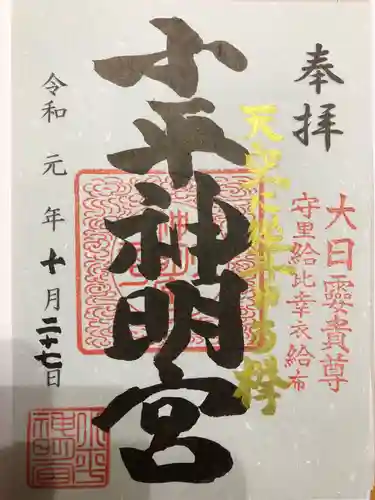 奉拝
大日孁貴尊
守里給比幸衣給布
小平神明宮
令和元年十月二十七日
小平神明宮